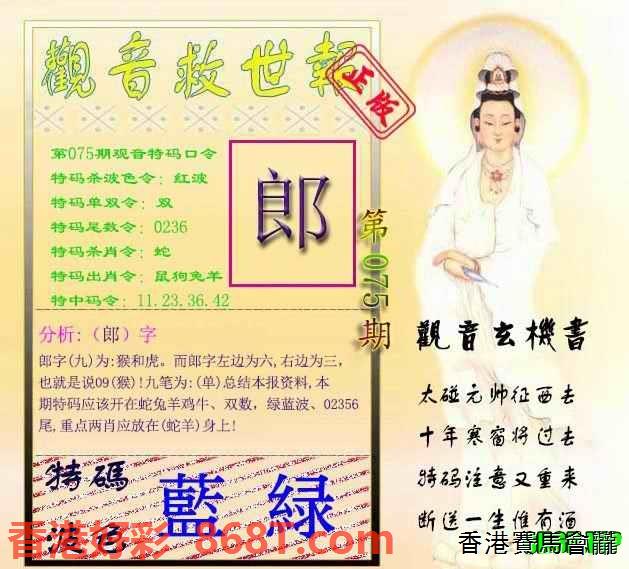 觀音救世報
正版
第075期观音特码口令
特码杀波色令：红波
特码单双令：双
特码尾数令：0236
特码杀肖令：蛇
特码出肖令：鼠狗兔羊
特中码令：11.23.36.42
郎
第075期
分析:（郎）字
郎字(九)为:猴和虎。而郎字左边为六,右边为三,
也就是说09(猴)!九笔为:(单)总结本报资料,本
期特码应该开在蛇兔羊鸡牛、双数，绿蓝波、02356
尾,重点两肖应放在(蛇羊)身上!
觀音玄機書
太碰元帅征西去
十年寒窗将过去
特码注意又重来
断送一生惟有酒
特碼
波色
藍 緑
香港好彩 8681.com
香港賽馬會